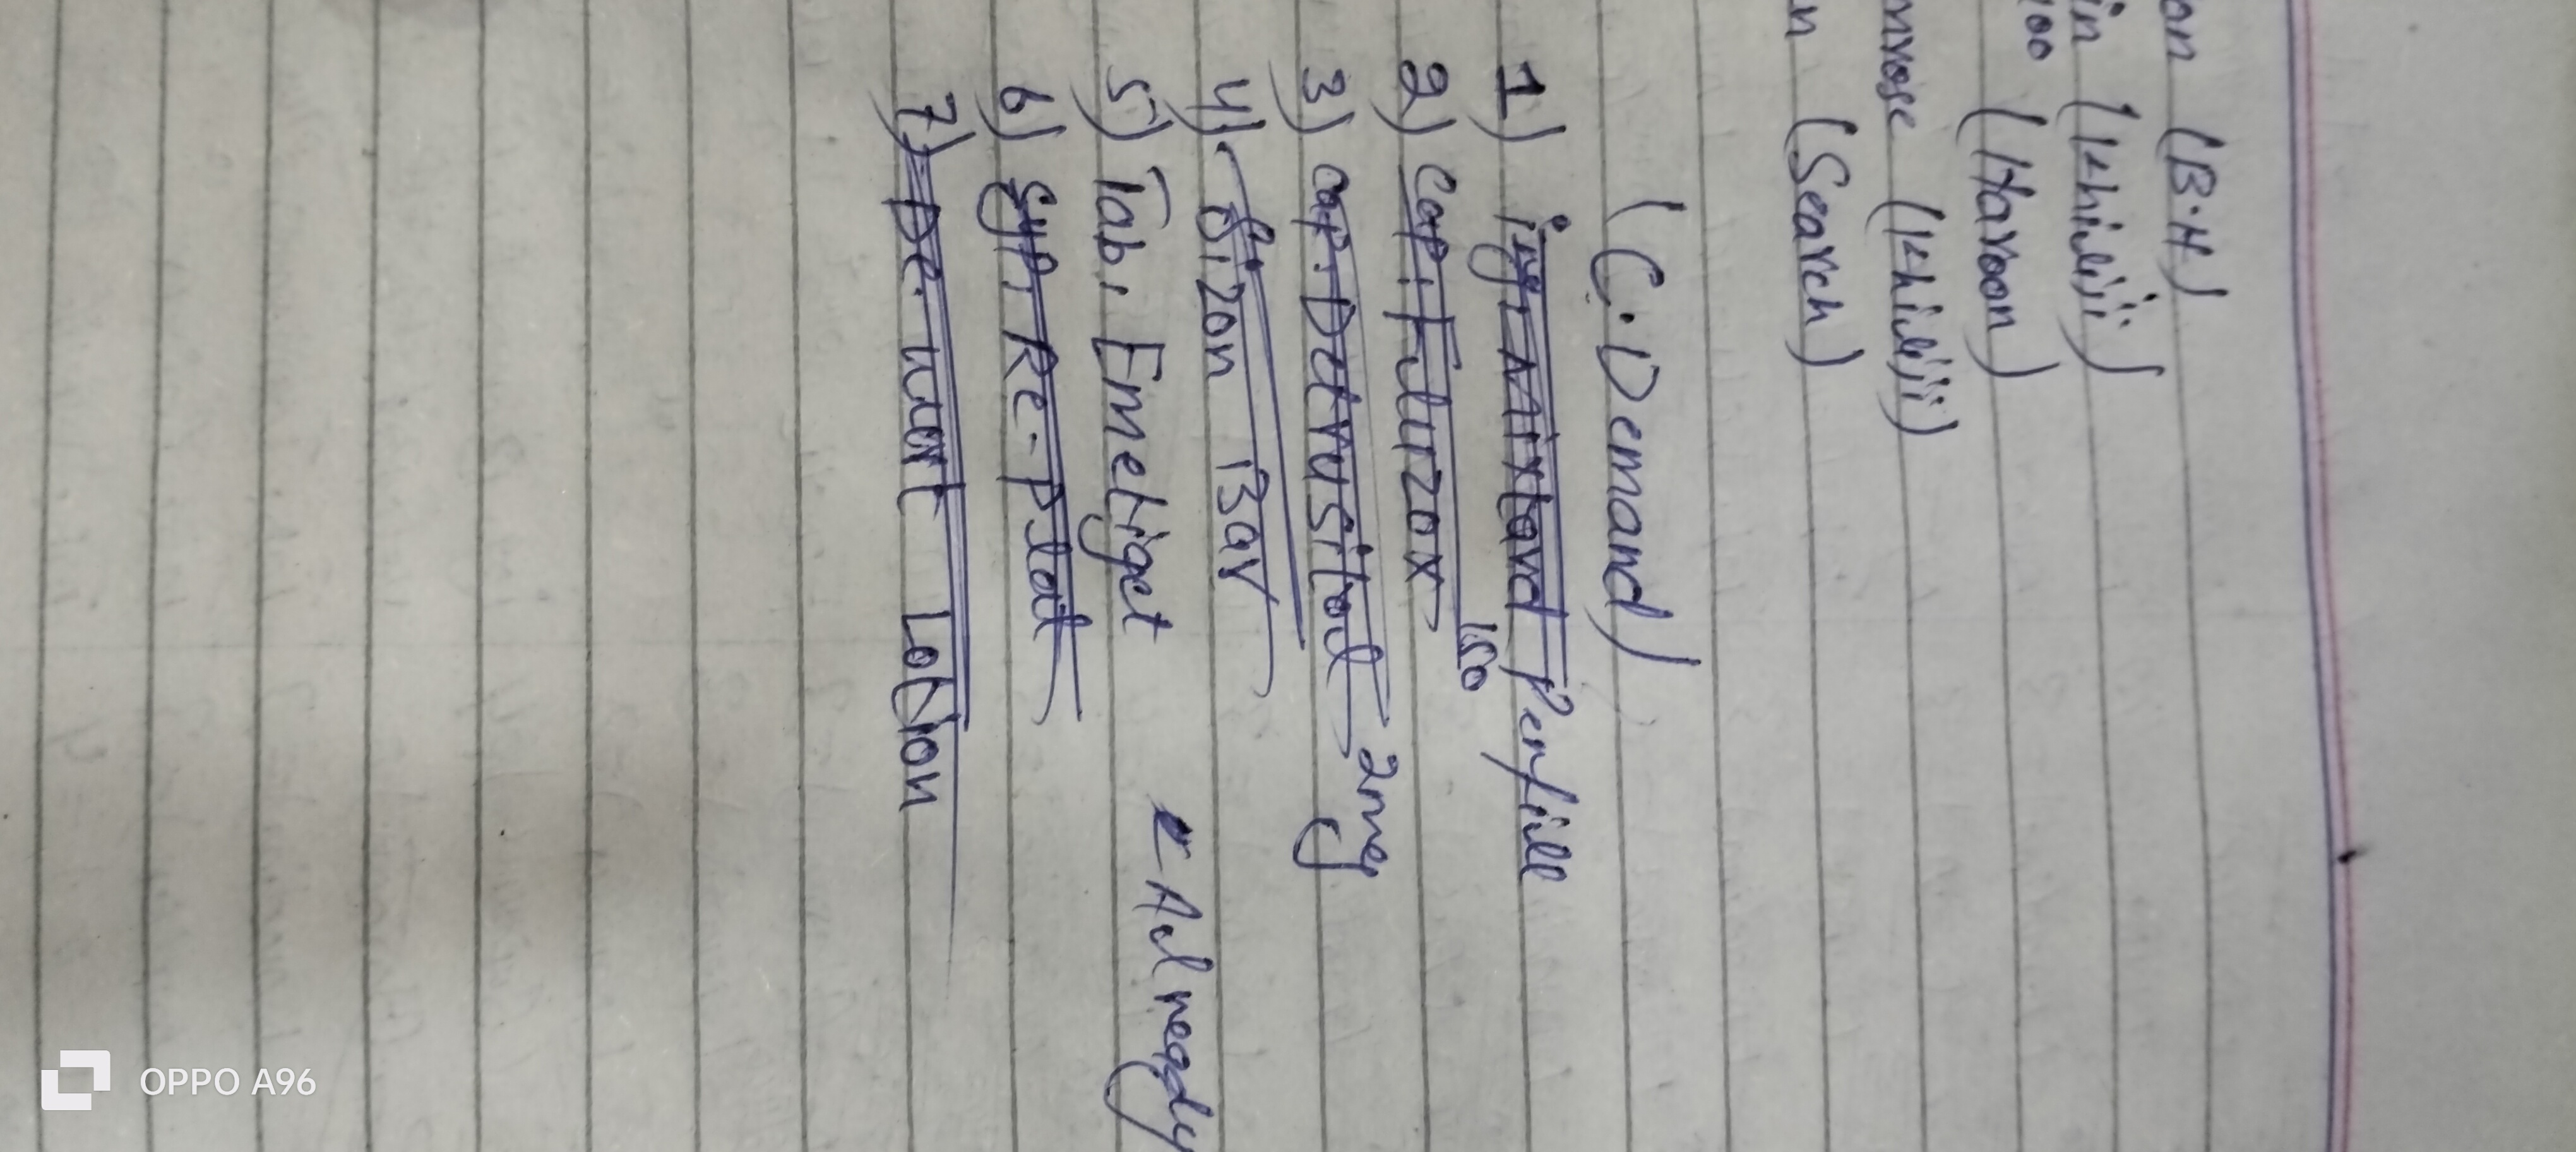 an (B.H)
in (Khiliji)
100 (Haroon)
nrose (Khiliji)
n (Search)
(C.Demand)
1) inj: Mixtard Penfill
2) Cap: Flurzox 150
3) Cap. Detrusitol 2mg
4) Sizon Bar
5) Tab. Emetiget ← Al megdy
6) Syp. Re-Plat
7) De.wart Lotion
OPPO A96